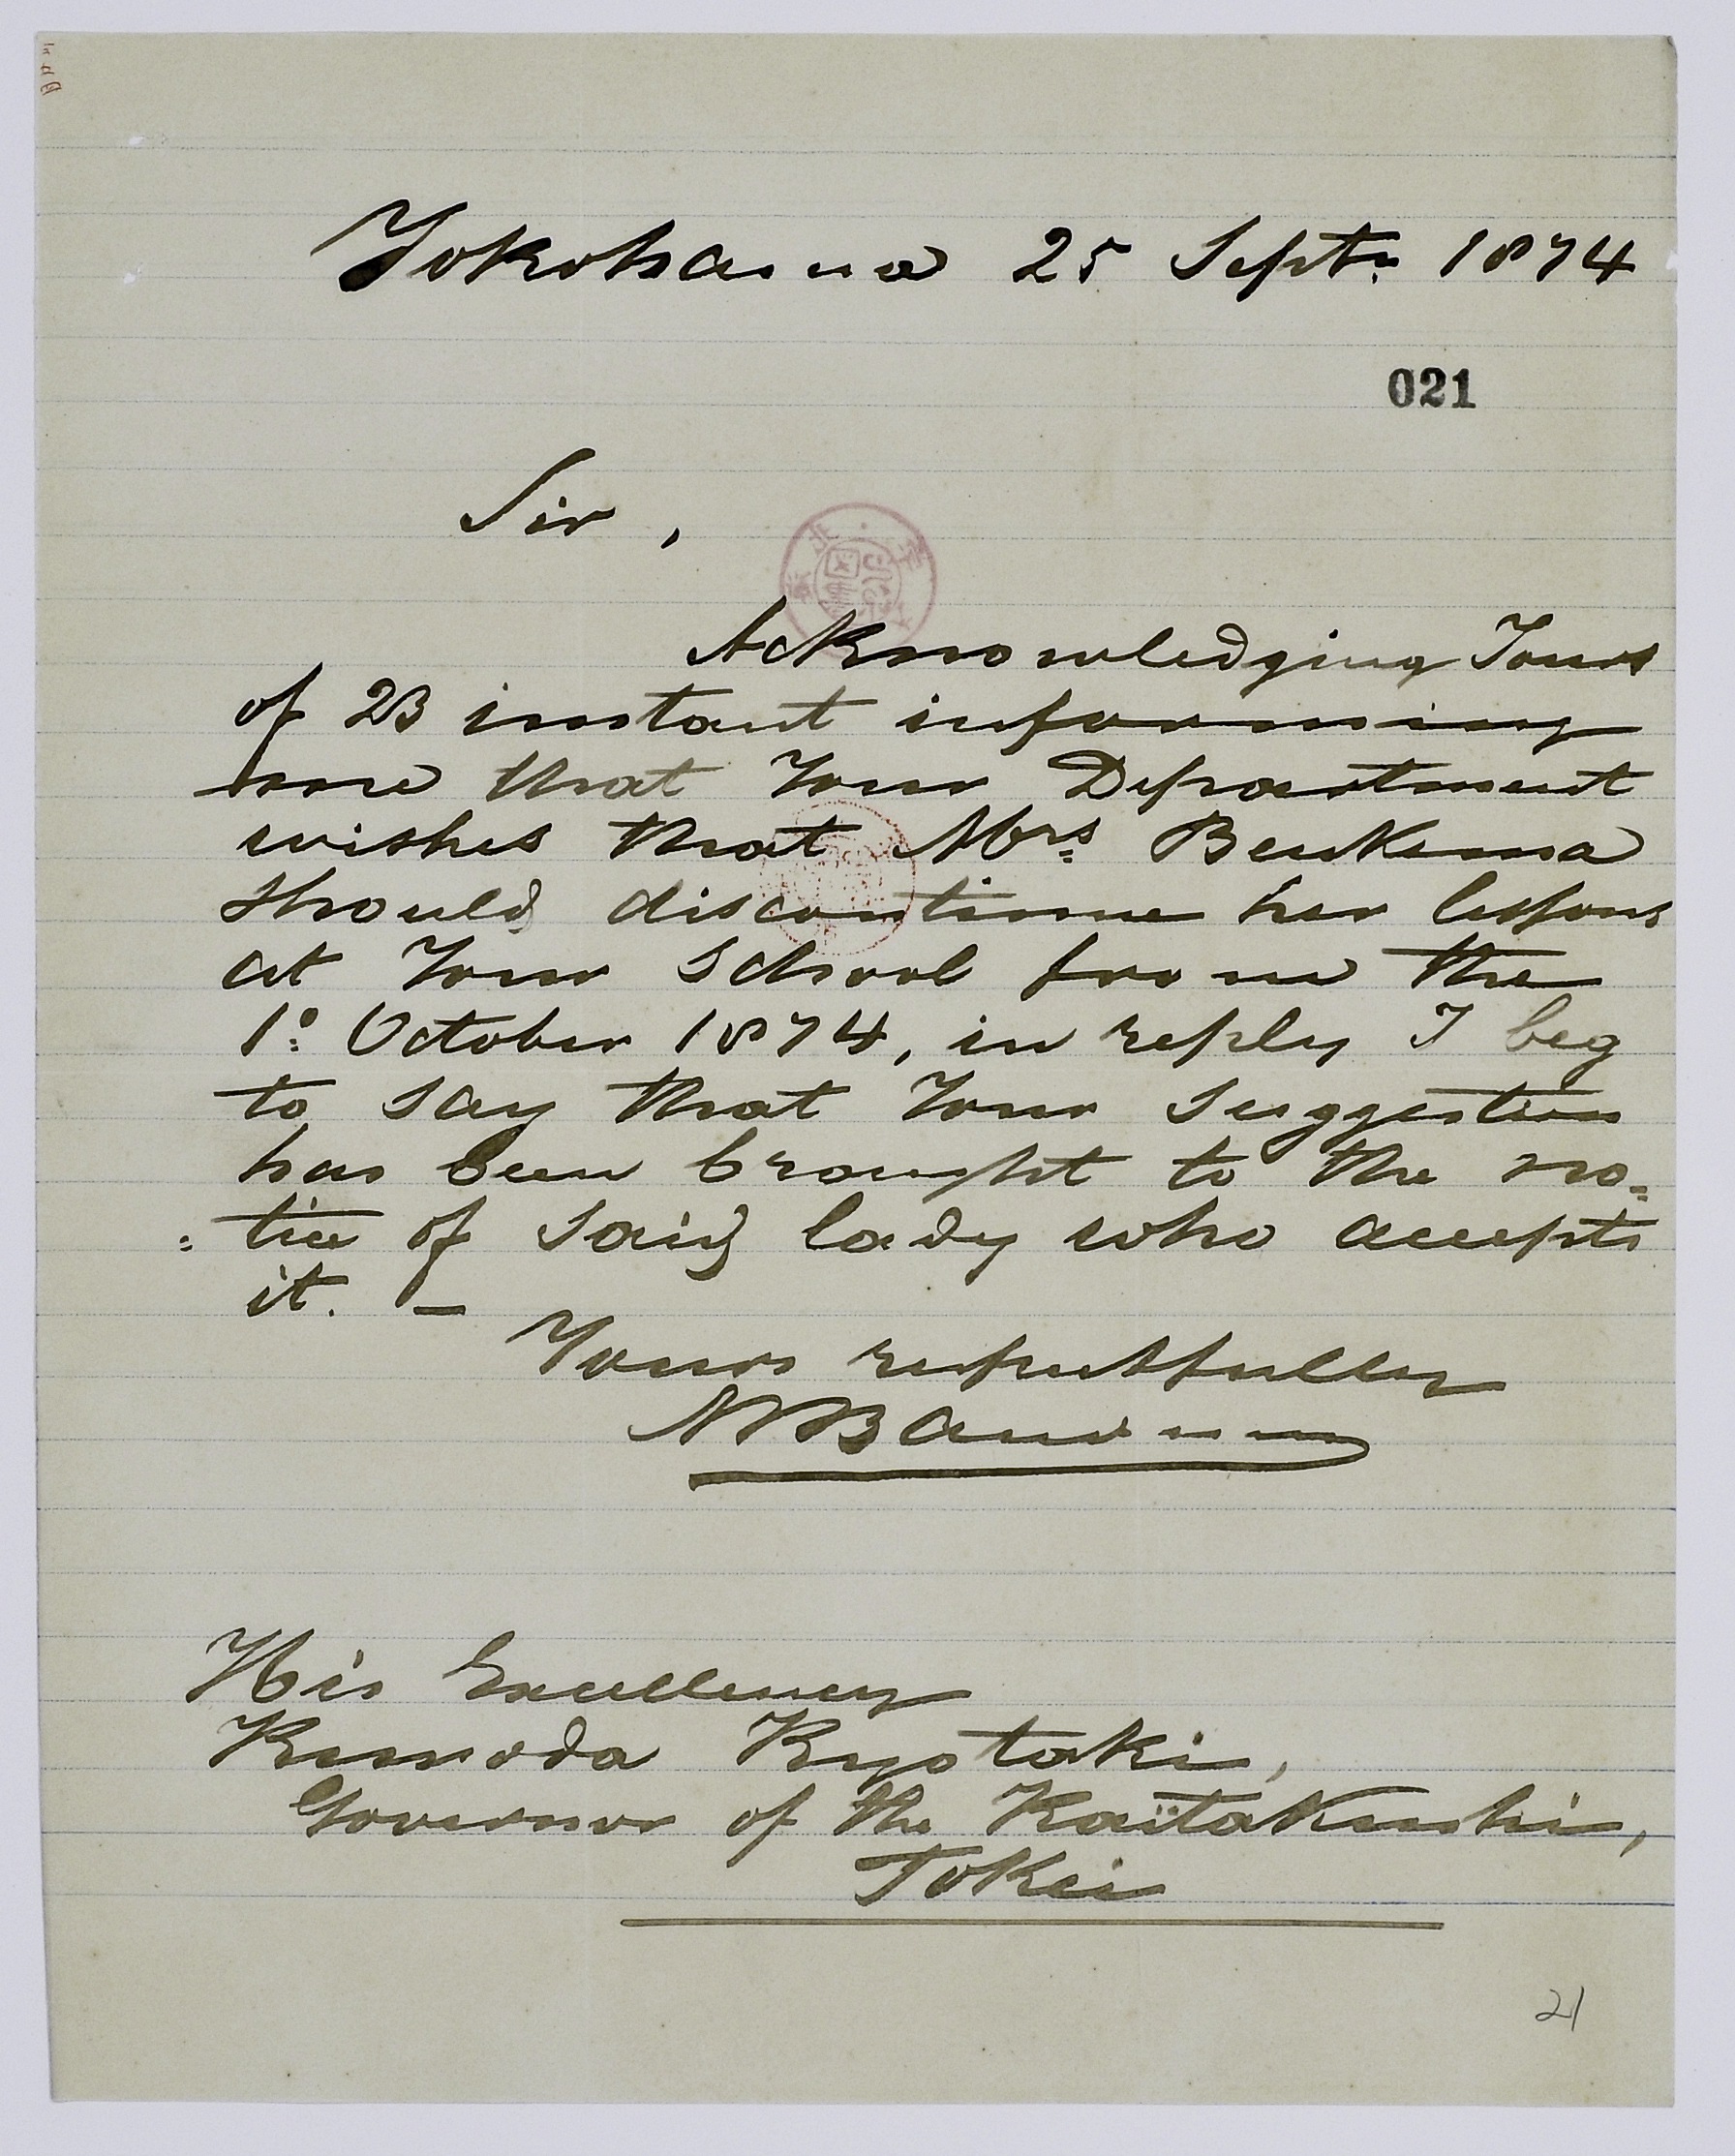 Yokohama 25 Sept. 1874
021
Sir,
Acknowledging Yours
of 23 instant informing
me that Your Department
wishes that Mrs. Beukema
should discontinue her lessons
at Your School from the
1º October 1874, in reply I beg
to say that Your Suggestion
has been brought to the no=
=tice of said lady who accepts
it. —
Yours respectfully
His Excellency
Kuroda Kyotaki,
Governor of the Kaïtakushi,
Tokei
21